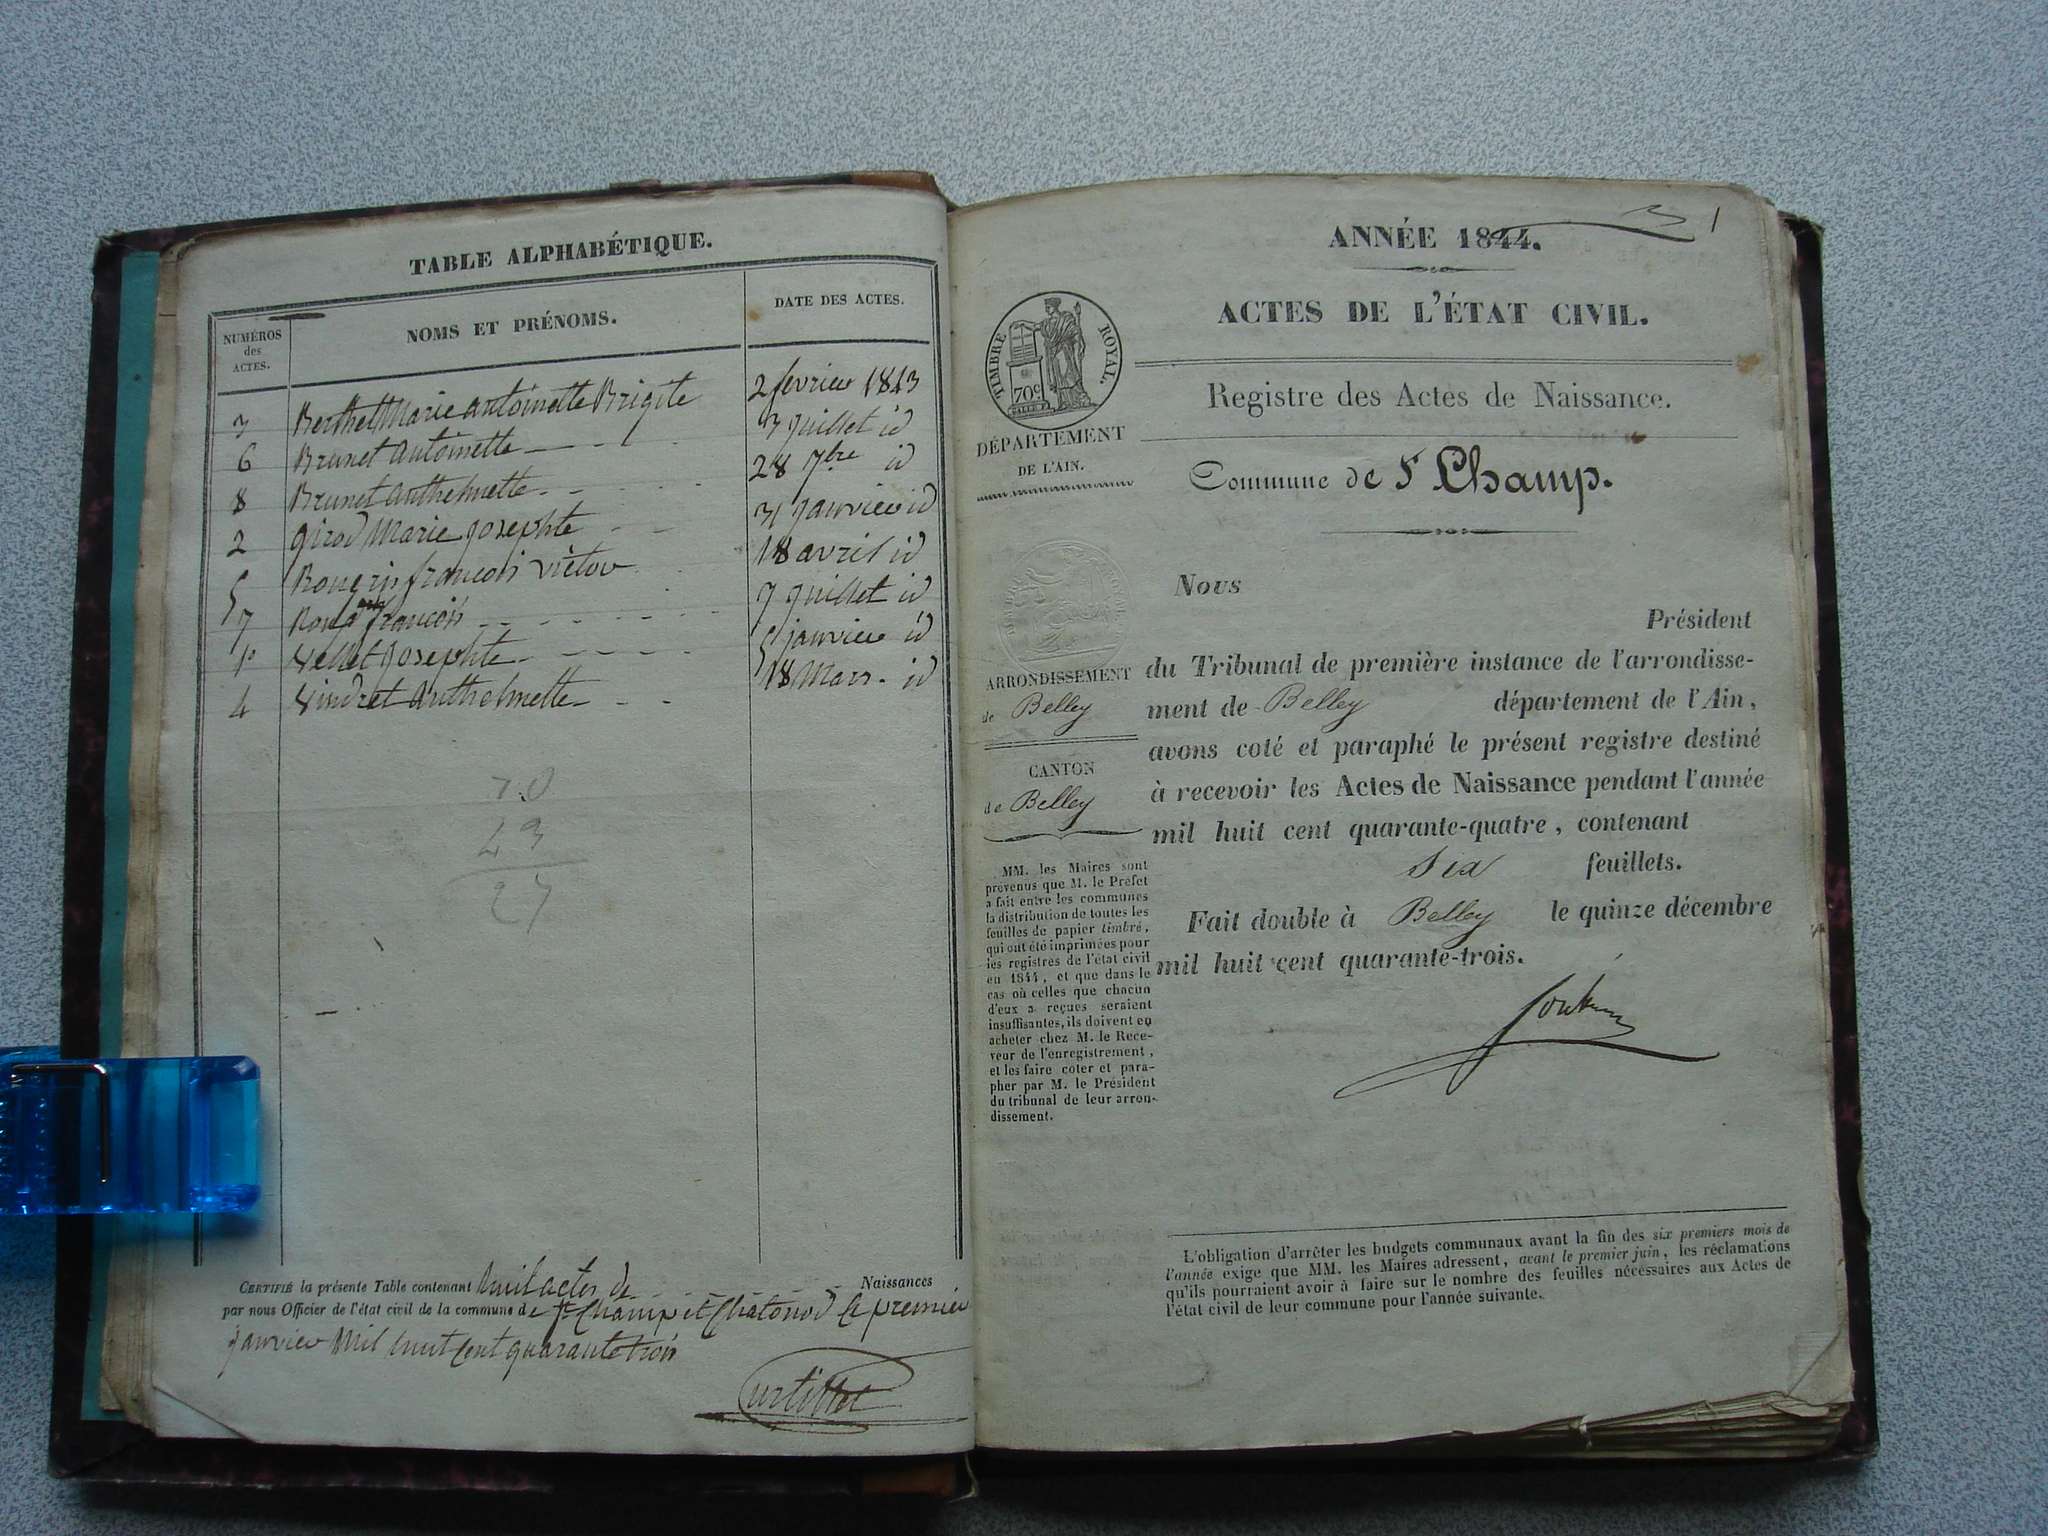 TABLE ALPHABÉTIQUE.
NUMÉROS
des
ACTES.
NOMS ET PRÉNOMS.
DATE DES ACTES.
3 Berthet Marie antoinette Brigite 2 fevrier 1843
6 Brunet Antoinette 3 juillet id
8 Brunet anthelmette 28 7bre id
2 Girod Marie Josephte 31 janvier id
5 françois victor 18 avril id
7 françois 7 juillet id
1 Vellet Josephte 5 janvier id
4 Vindret Anthelmette 18 Mars id
70
43
27
CERTIFIÉ la présente Table contenant huit actes de Naissances
par nous Officier de l'état civil de la commune de St Champ et Chatonod le premier
janvier Mil huit cent quarante trois
ANNÉE 1844.
1
ACTES DE L'ÉTAT CIVIL.
TIMBRE ROYAL.
70c
DÉPARTEMENT
DE L'AIN.
Registre des Actes de Naissance.
Commune de St Champ.
ARRONDISSEMENT
de Belley
CANTON
de Belley
MM. les Maires sont
prévenus que M. le Préfet
a fait entre les communes
la distribution de toutes les
feuilles de papier timbré,
qui ont été imprimées pour
les registres de l'état civil
en 1844, et que dans le
cas où celles que chacun
d'eux a reçues seraient
insuffisantes, ils doivent en
acheter chez M. le Rece-
veur de l'enregistrement,
et les faire coter et para-
pher par M. le Président
du tribunal de leur arron-
dissement.
Nous
Président
du Tribunal de première instance de l'arrondisse-
ment de Belley département de l'Ain,
avons coté et paraphé le présent registre destiné
à recevoir les Actes de Naissance pendant l'année
mil huit cent quarante-quatre, contenant
six feuillets.
Fait double à Belley le quinze décembre
mil huit cent quarante-trois.
L'obligation d'arrêter les budgets communaux avant la fin des six premiers mois de
l'année exige que MM. les Maires adressent, avant le premier juin, les réclamations
qu'ils pourraient avoir à faire sur le nombre des feuilles nécessaires aux Actes de
l'état civil de leur commune pour l'année suivante.